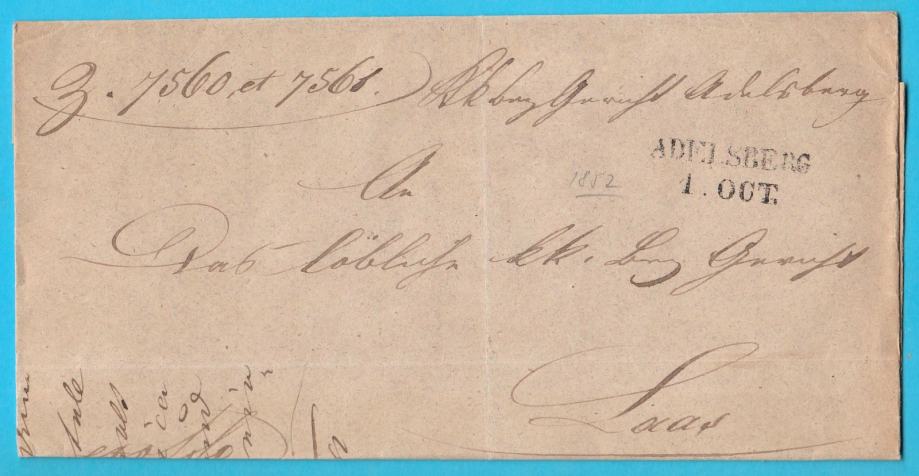 Z. 7560, et 7561. kk bez Gericht Adelsberg
ADELSBERG
1. OCT.
1852
An
Das löbliche kk. Bez Gericht
Laas